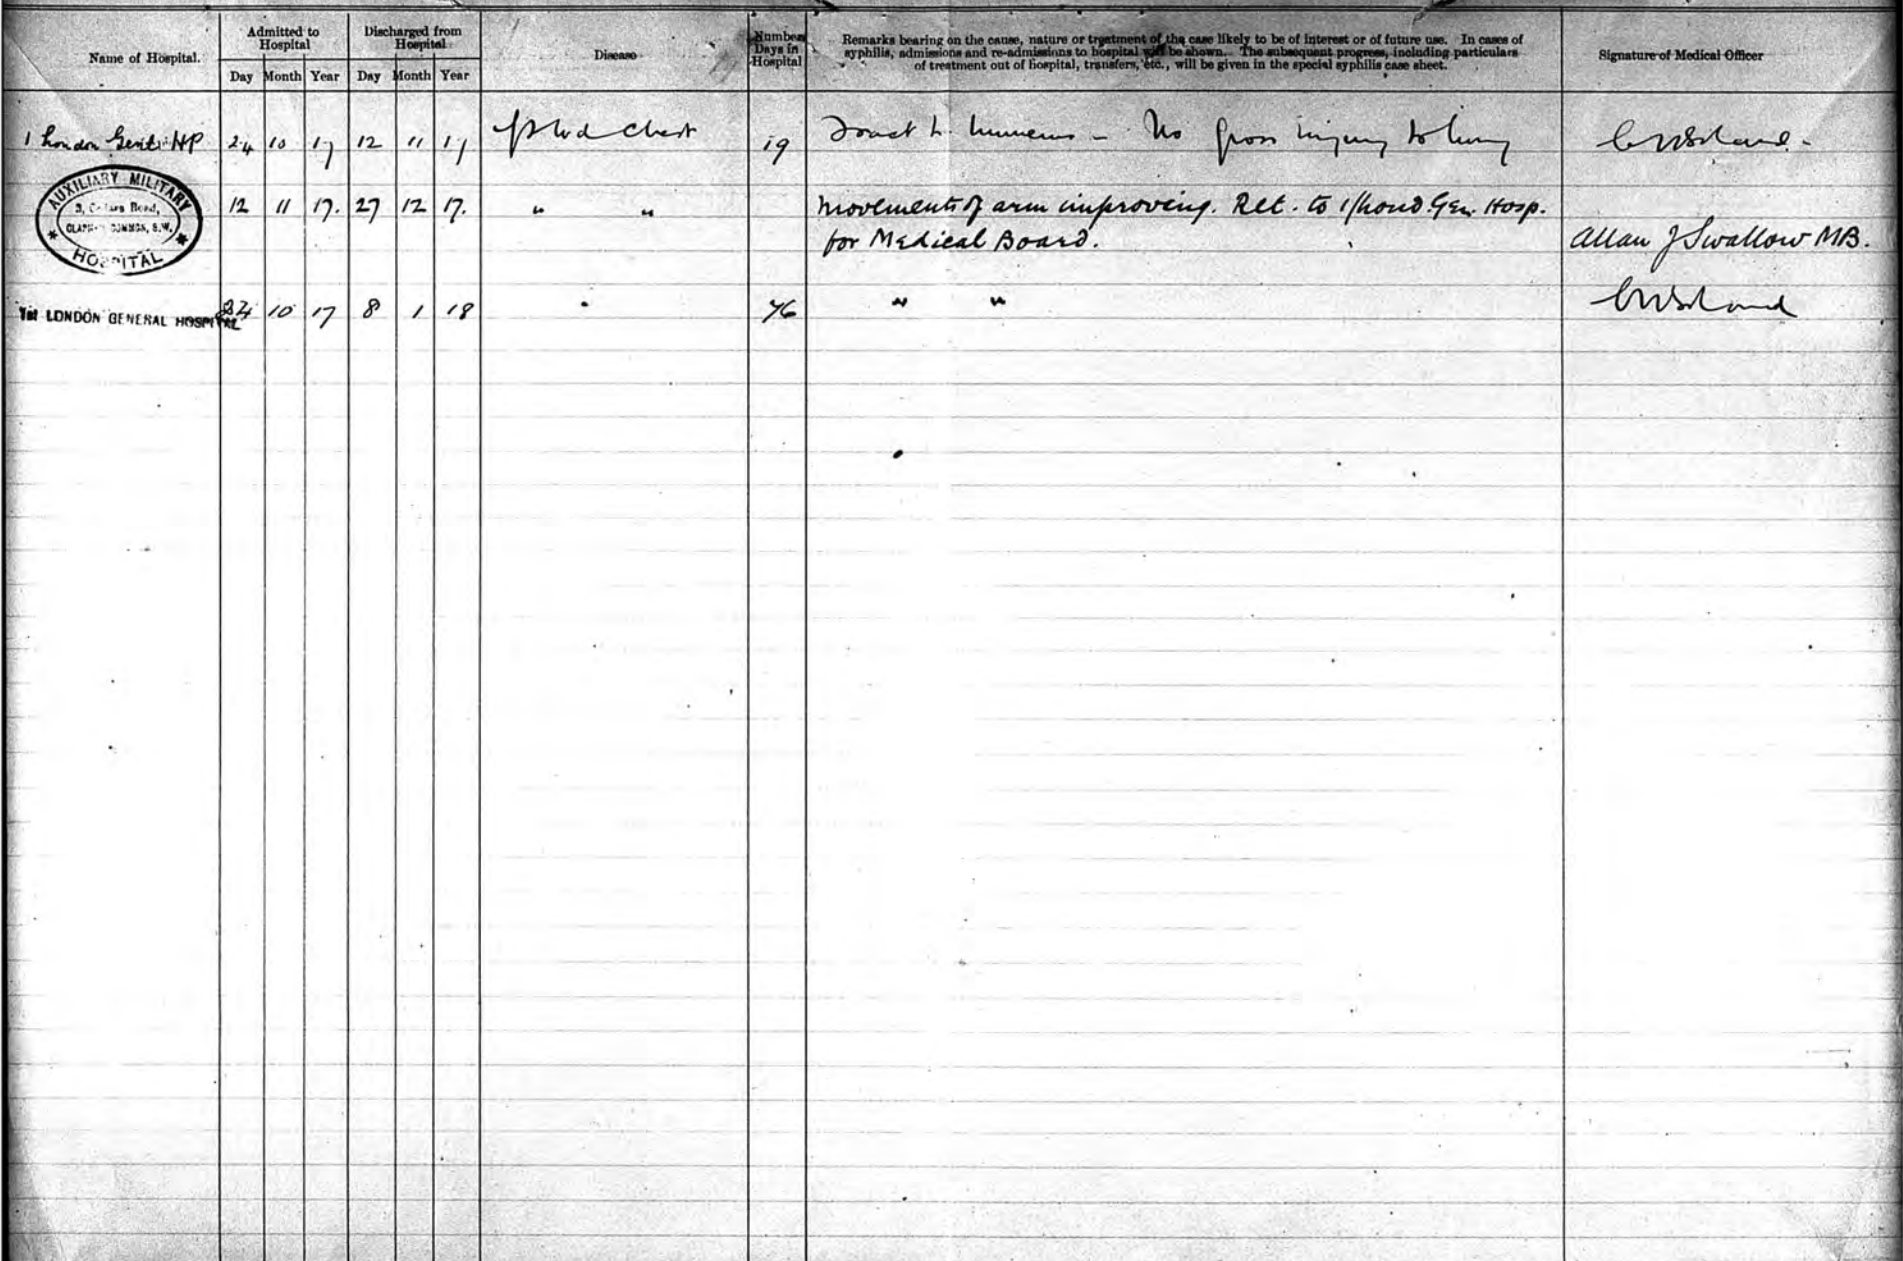 Name of Hospital.
Admitted to Hospital
Discharged from Hospital
Disease
Number Days in Hospital
Remarks bearing on the cause, nature or treatment of the case likely to be of interest or of future use. In cases of
syphilis, admissions and re-admissions to hospital will be shown. The subsequent progress, including particulars
of treatment out of hospital, transfers, etc., will be given in the special syphilis case sheet.
Signature of Medical Officer
Day Month Year Day Month Year
1 London Genl HP 24 10 17 12 11 17 Chest 19 humerus - No gross injury to lung
AUXILIARY MILITARY
3, Road,
CLAPHAM COMMON, S.W.
HOSPITAL
12 11 17. 27 12 17. " " Movements of arm improving. Ret. to 1/Lond. Gen. Hosp.
for Medical Board. Allan J Swallow MB.
1st LONDON GENERAL HOSPITAL 24 10 17 8 1 18 " 76 " "